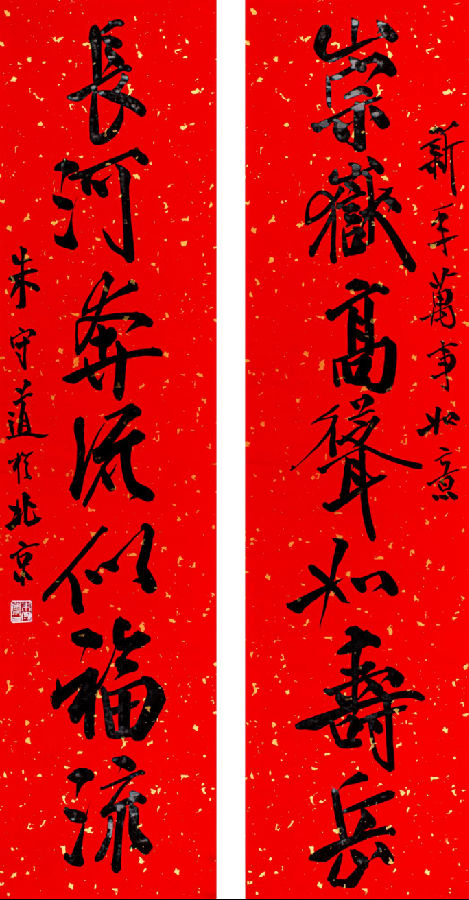 新年萬事如意
崇嶽高聳如壽岳
長河奔流似福流
朱守道於北京